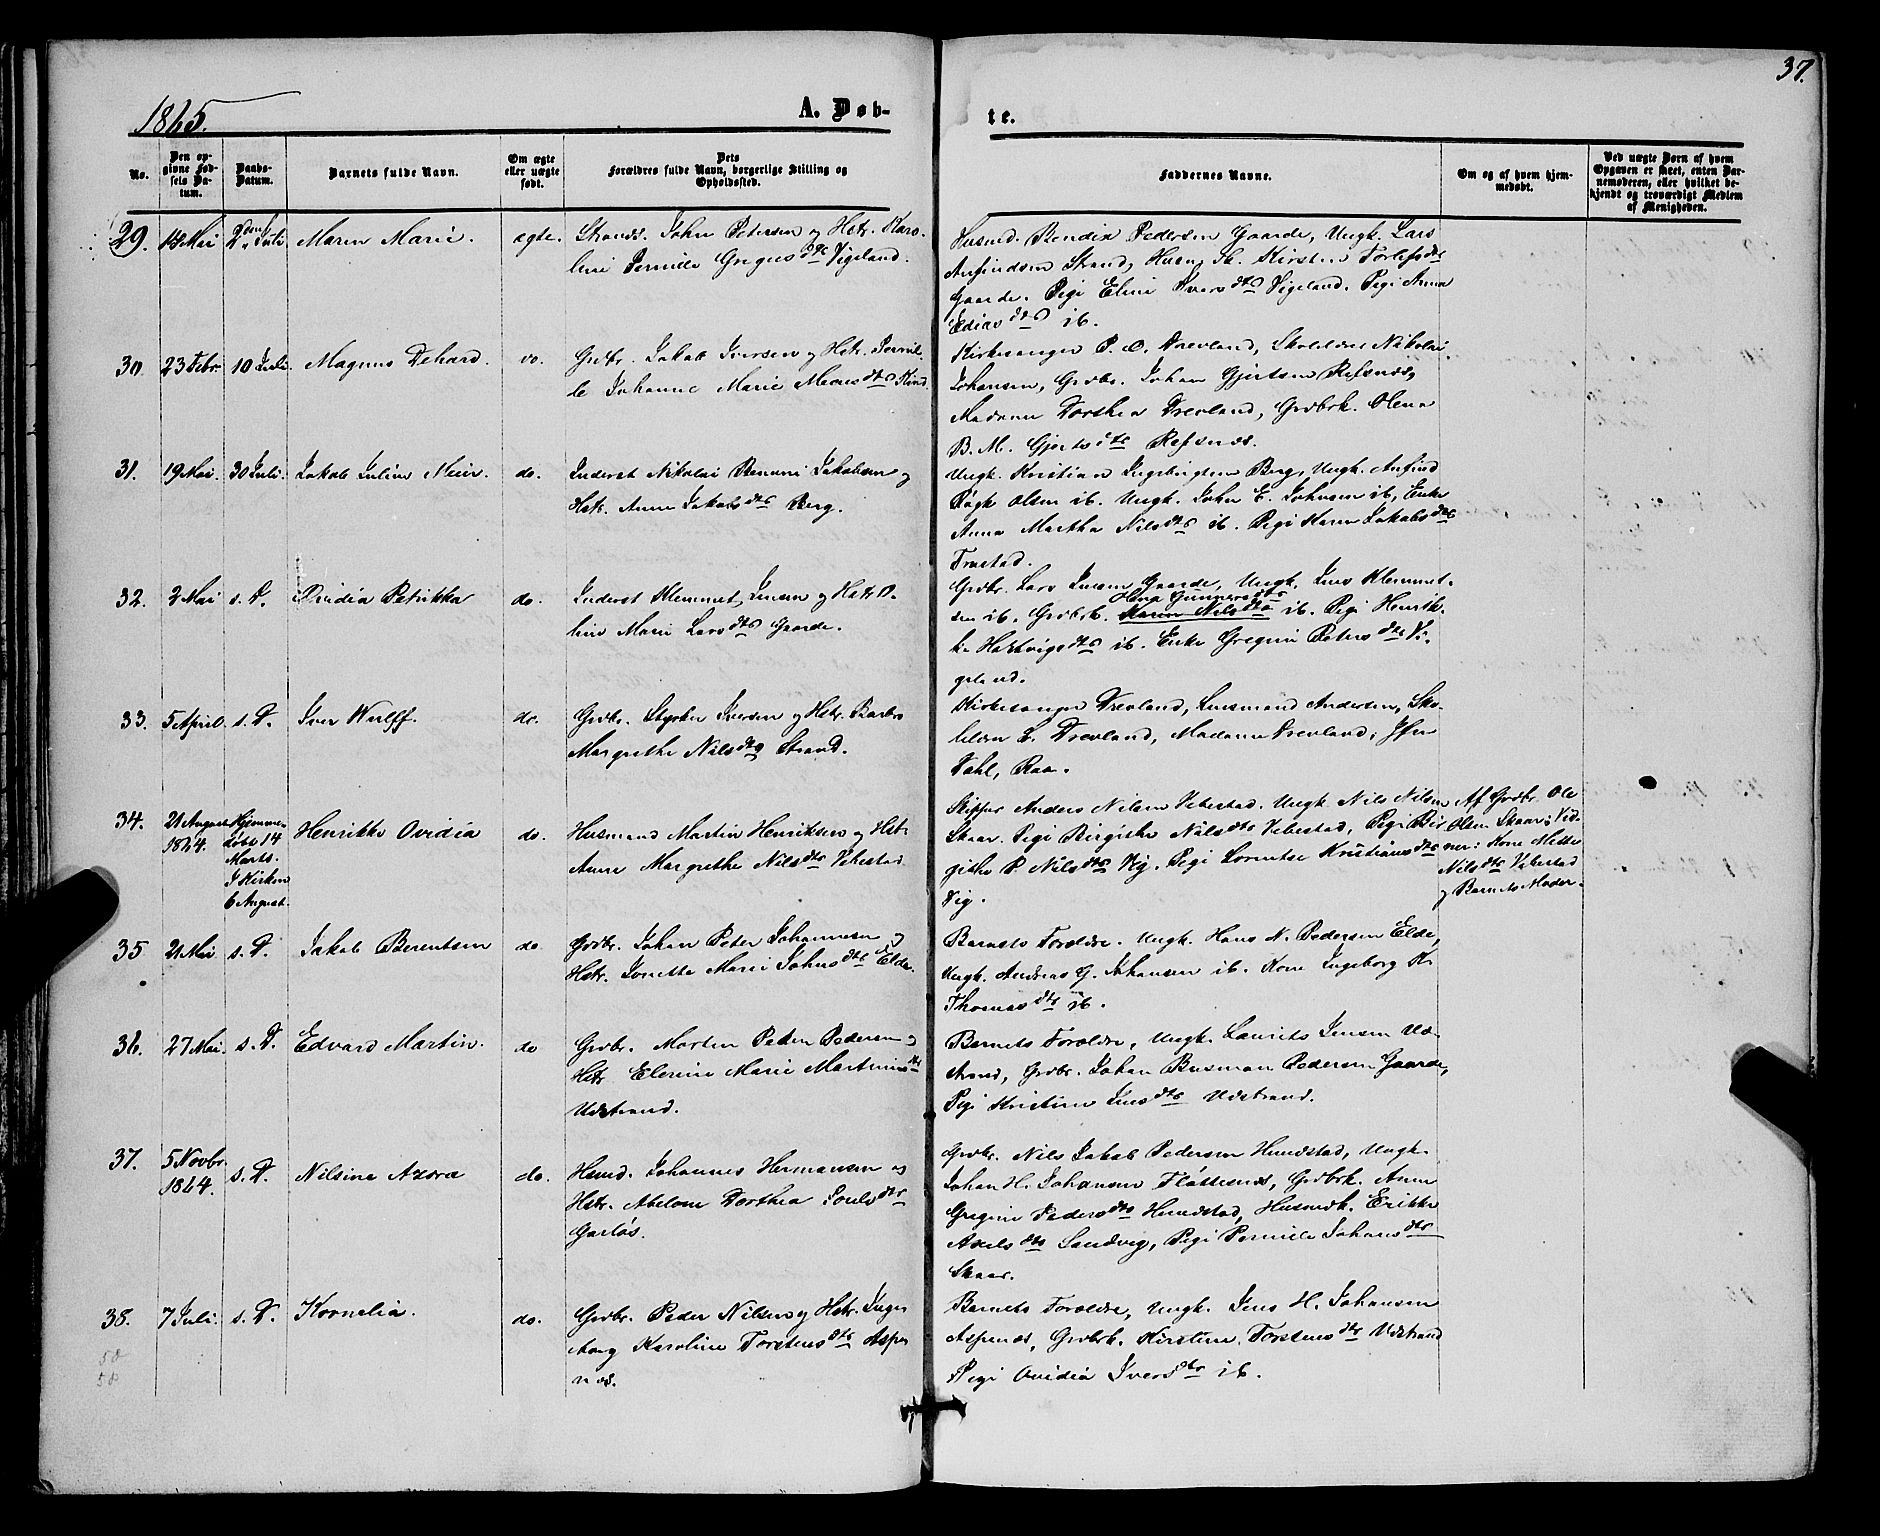 37.
1865.
A. Døb-
te.
No.
Den op-
givne Fød-
sels Da-
tum.
Daabs-
Datum.
Barnets fulde Navn.
Om ægte
eller uægte
født.
Dets
Forældres fulde Navn, borgerlige Stilling og
Opholdssted.
Faddernes Navne.
Om og af hvem hjem-
medøbt.
Ved uægte Børn af hvem
Opgaven er skeet, enten Bar-
nemoderen, eller hvilket be-
kjendt og troværdigt Medlem
af Menigheden.
29. 18 Mai 2den Juli Maren Marie. ægte. Strands. John Petersen og Hstr. Karo-
line Pernille Gregusdtr Vigeland.
Husmd. Bendix Pedersen Gaarde, Ungk. Lars
Anfindsen Strand, Kirsten Torlefsdtr
Gaarde. Pige Eline Iversdtr Vigeland. Pige Anna
Ediasdtr ib.
30. 23 Febr. 10 Juli. Magnus Dehard. do. Grdbr. Jakob Iversen og Hstr. Pernil-
le Johanne Marie Mconsdtr Kind
Kirkesanger P. O. Drevland, Skolelærer Nikolai
Johansen, Grdbr. Johan Gjertsen Refsnæs,
Madame Dorthea Drevland, Grdbrk. Olena
B. M. Gjertsdtr Refsnæs.
31. 19 Mai. 30 Juli. Jakob Julius Meier. do. Inderst Nikolai Benoni Jakobsen og
Hstr. Anne Jakobsdtr Berg.
Ungk. Kristian Ingebrigtsen Berg, Ungk. Anfind
Olsen ib. Ungk. John E. Johnsen ib, Enke
Anna Martha Nilsdtr ib. Pige Karen Jakobsdtr
Trastad.
32. 2 Mai s. D. Ovidia Petrikka do. Inderst Klemmet Jensen og Hstr O-
line Marie Larsdtr Gaarde.
Grdbr. Lars Jensen Gaarde, Ungk. Jens Klemmet-
Gunnersdtr
sen ib. Grdbrk. Karen Nilsdtr ib. Pige Henrik-
ke Hartvigsdtr ib. Enke Gregine Petersdtr Vi-
geland.
33. 5 April. s. D. Iver Wulff. do. Grdbr. Styrker Iversen og Hstr. Barbro
Margrethe Nilsdtr Strand.
Kirkesanger Drevland, Lensmand Andersen, Sko-
lelærer L. Drevland, Madame Drevland, Jfru
Dahl, Raa.
34. 21 August
1864. Hjemme-
døbt 14
Marts.
I Kirken
6 August. Henrikke Ovidia do. Husmand Martin Henriksen og Hstr
Anne Margrethe Nilsdtr Vebestad
Skipper Anders Nilsen Vebestad. Ungk Nils Nilsen
Skaar. Pige Birgithe Nilsdtr Vebestad, Pige Bir-
githe P. Nilsdtr Vig. Pige Lorentse Kristiansdtr
Vig.
Af Grdbr. Ole
Olsen Skaar; Vid-
ner: Kone Mette
Nilsdtr Vebestad
og Barnets Moder.
35 21 Mai s. D. Jakob Berentsen do. Grdbr. Johan Peter Johannesen og
Hstr. Jonette Marie Johnsdtr Elde.
Barnets Forældre. Ungk. Hans N. Pedersen Elde,
Ungk. Andreas G. Johansen ib. Kone Ingeborg K.
Thomasdtr ib.
36. 27 Mai. s. D. Edvard Martin. do Grdbr. Morten Peder Pedersen og
Hstr. Elerine Marie Martinusdtr
Udstrand.
Barnets Forældre, Ungk. Laurits Jensen Ud-
strand, Grdbr. Johan Busman Pedersen Gaarde,
Pige Kristine Jensdtr Udstrand.
37. 5 Novbr.
1864. s. D. Nilsine Azora do. Husmd. Johannes Hermansen og
Hstr. Abelone Dorthea Poulsdtr
Garløs.
Grdbr. Nils Jakob Pedersen Hundstad, Ungk.
Johan H. Johansen Fløttenæs, Grdbrk. Anne
Gregine Pedersdtr Hundstad, Husmdk. Erikke
Axelsdtr Sandvig, Pige Pernille Johansdtr
Skaar.
38. 7 Juli. s. D. Kornelia. do. Grdbr. Peder Nilsen og Hstr. Inge-
borg Karoline Torstensdtr Aspe-
næs.
Barnets Forældre, Ungk. Jens H. Johansen
Aspenæs, Grdbrk. Kirstine Torstensdtr Udstrand
Pige Ovidia Iversdtr ib.
58
58